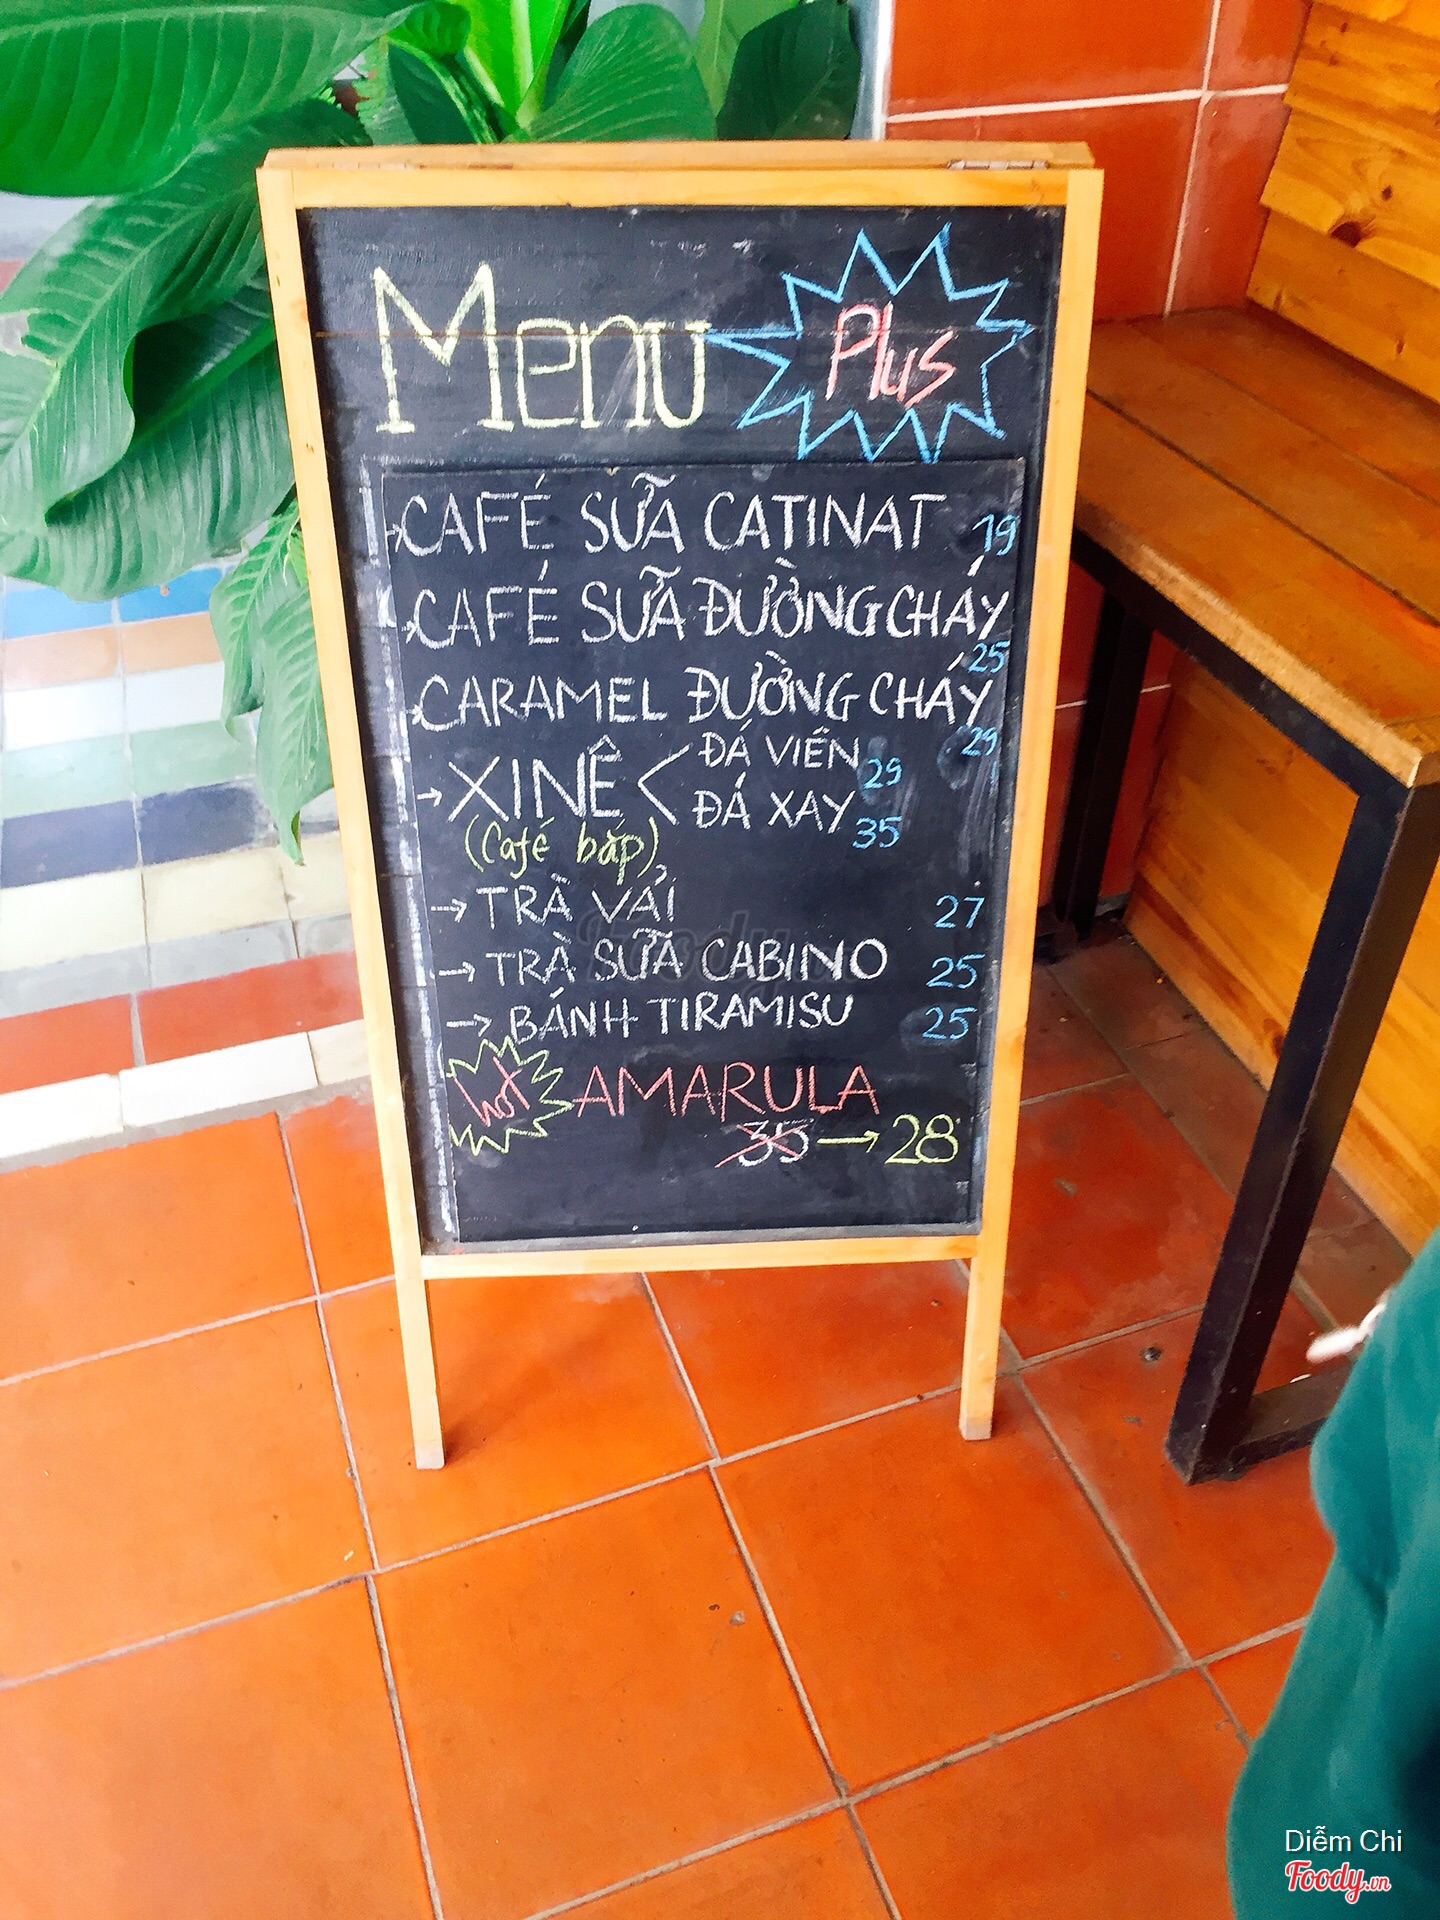 Menu Plus
→ CAFÉ SỮA CATINAT 19
→ CAFÉ SỮA ĐƯỜNG CHÁY
25
→ CARAMEL ĐƯỜNG CHÁY
29
→ XINÊ < ĐÁ VIÊN 29
ĐÁ XAY 35
(Café bắp)
→ TRÀ VẢI 27
→ TRÀ SỮA CABINO 25
→ BÁNH TIRAMISU 25
hot AMARULA
35 → 28
Foody
Diễm Chi
Foody.vn